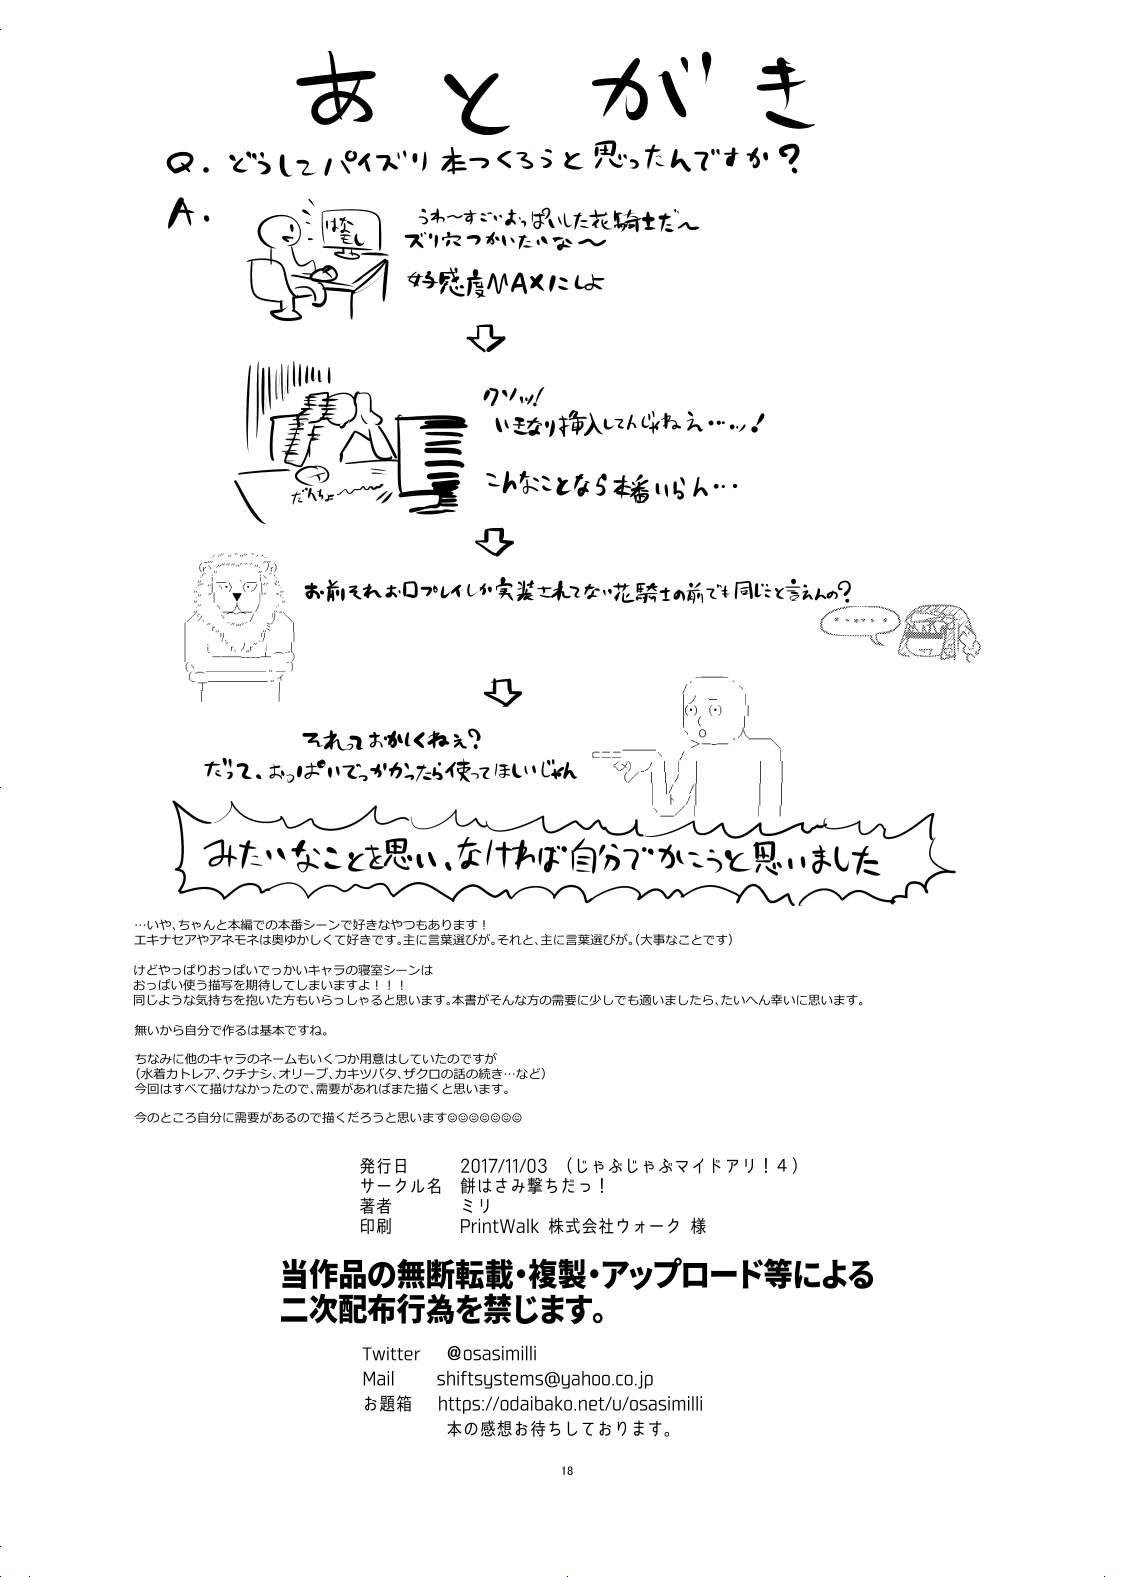 あとがき
Q. どうしてパイズリ本つくろうと思ったんですか?
A.
はな
もし
うわ～すごいおっぱいした花騎士だ～
ズリ穴つかいたいな～
好感度MAXにしよ
クソッ!
いきなり挿入してんじゃねえ…ッ!
こんなことなら本番いらん…
だんちょ～～
お前それお口プレイしか実装されてない花騎士の前でも同じこと言えんの?
それっておかしくねぇ?
だって、おっぱいでっかかったら使ってほしいじゃん
みたいなことを思い、なければ自分でかこうと思いました
…いや、ちゃんと本編での本番シーンで好きなやつもあります！
エキナセアやアネモネは奥ゆかしくて好きです。主に言葉選びが。それと、主に言葉選びが。（大事なことです）
けどやっぱりおっぱいでっかいキャラの寝室シーンは
おっぱい使う描写を期待してしまいますよ！！！
同じような気持ちを抱いた方もいらっしゃると思います。本書がそんな方の需要に少しでも適いましたら、たいへん幸いに思います。
無いから自分で作るは基本ですね。
ちなみに他のキャラのネームもいくつか用意はしていたのですが
（水着カトレア、クチナシ、オリーブ、カキツバタ、ザクロの話の続き…など）
今回はすべて描けなかったので、需要があればまた描くと思います。
今のところ自分に需要があるので描くだろうと思います☺☺☺☺☺☺☺
発行日 2017/11/03 （じゃぶじゃぶマイドアリ！４）
サークル名 餅はさみ撃ちだっ！
著者 ミリ
印刷 PrintWalk 株式会社ウォーク 様
当作品の無断転載・複製・アップロード等による
二次配布行為を禁じます。
Twitter @osasimilli
Mail shiftsystems@yahoo.co.jp
お題箱 https://odaibako.net/u/osasimilli
本の感想お待ちしております。
18